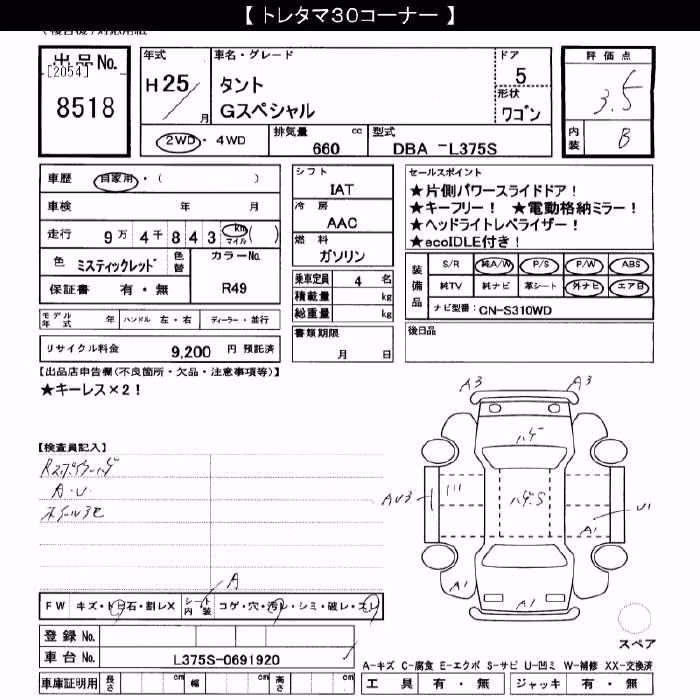 【 トレタマ30コーナー 】
出品No.
[2054]
8518
年式
H 25
月
車名・グレード
タント
Gスペシャル
ドア
5
形状
ワゴン
評価点
3.5
内装
B
2WD・4WD
排気量
660
cc
型式
DBA -L375S
車歴
自家用・( )
車検
年 月
走行
9万 4千 8 4 3
km
マイル
( )
色
ミスティックレッド
色替
カラーNo.
R49
保証書
有・無
シフト
IAT
冷房
AAC
燃料
ガソリン
乗車定員
4 名
積載量
kg
総重量
kg
書類期限
月 日
セールスポイント
★片側パワースライドドア！
★キーフリー！ ★電動格納ミラー！
★ヘッドライトレベライザー！
★ecoIDLE付き！
装備品
S/R 純A/W P/S P/W ABS
純TV 純ナビ 革シート 外ナビ エア日
ナビ型番:
CN-S310WD
後日品
モデル年式
年
ハンドル 左・右
ディーラー・並行
リサイクル料金
9,200 円 預託済
【出品店申告欄(不良箇所・欠品・注意事項等)】
★キーレス×2！
【検査員記入】
A・U
A
FW
キズ・トビ石・割レX
シート内装
コゲ・穴・汚レ・シミ・破レ・スレ
登録 No.
車台 No.
L375S-0691920
車庫証明用
長さ
cm
幅
cm
高さ
cm
A3
A3
ハゲ
ハゲ・S
AU3
U1
A1
A1
A1
スペア
A-キズ C-腐食 E-エクボ S-サビ U-凹ミ W-補修 XX-交換済
工具
有・無
ジャッキ
有・無